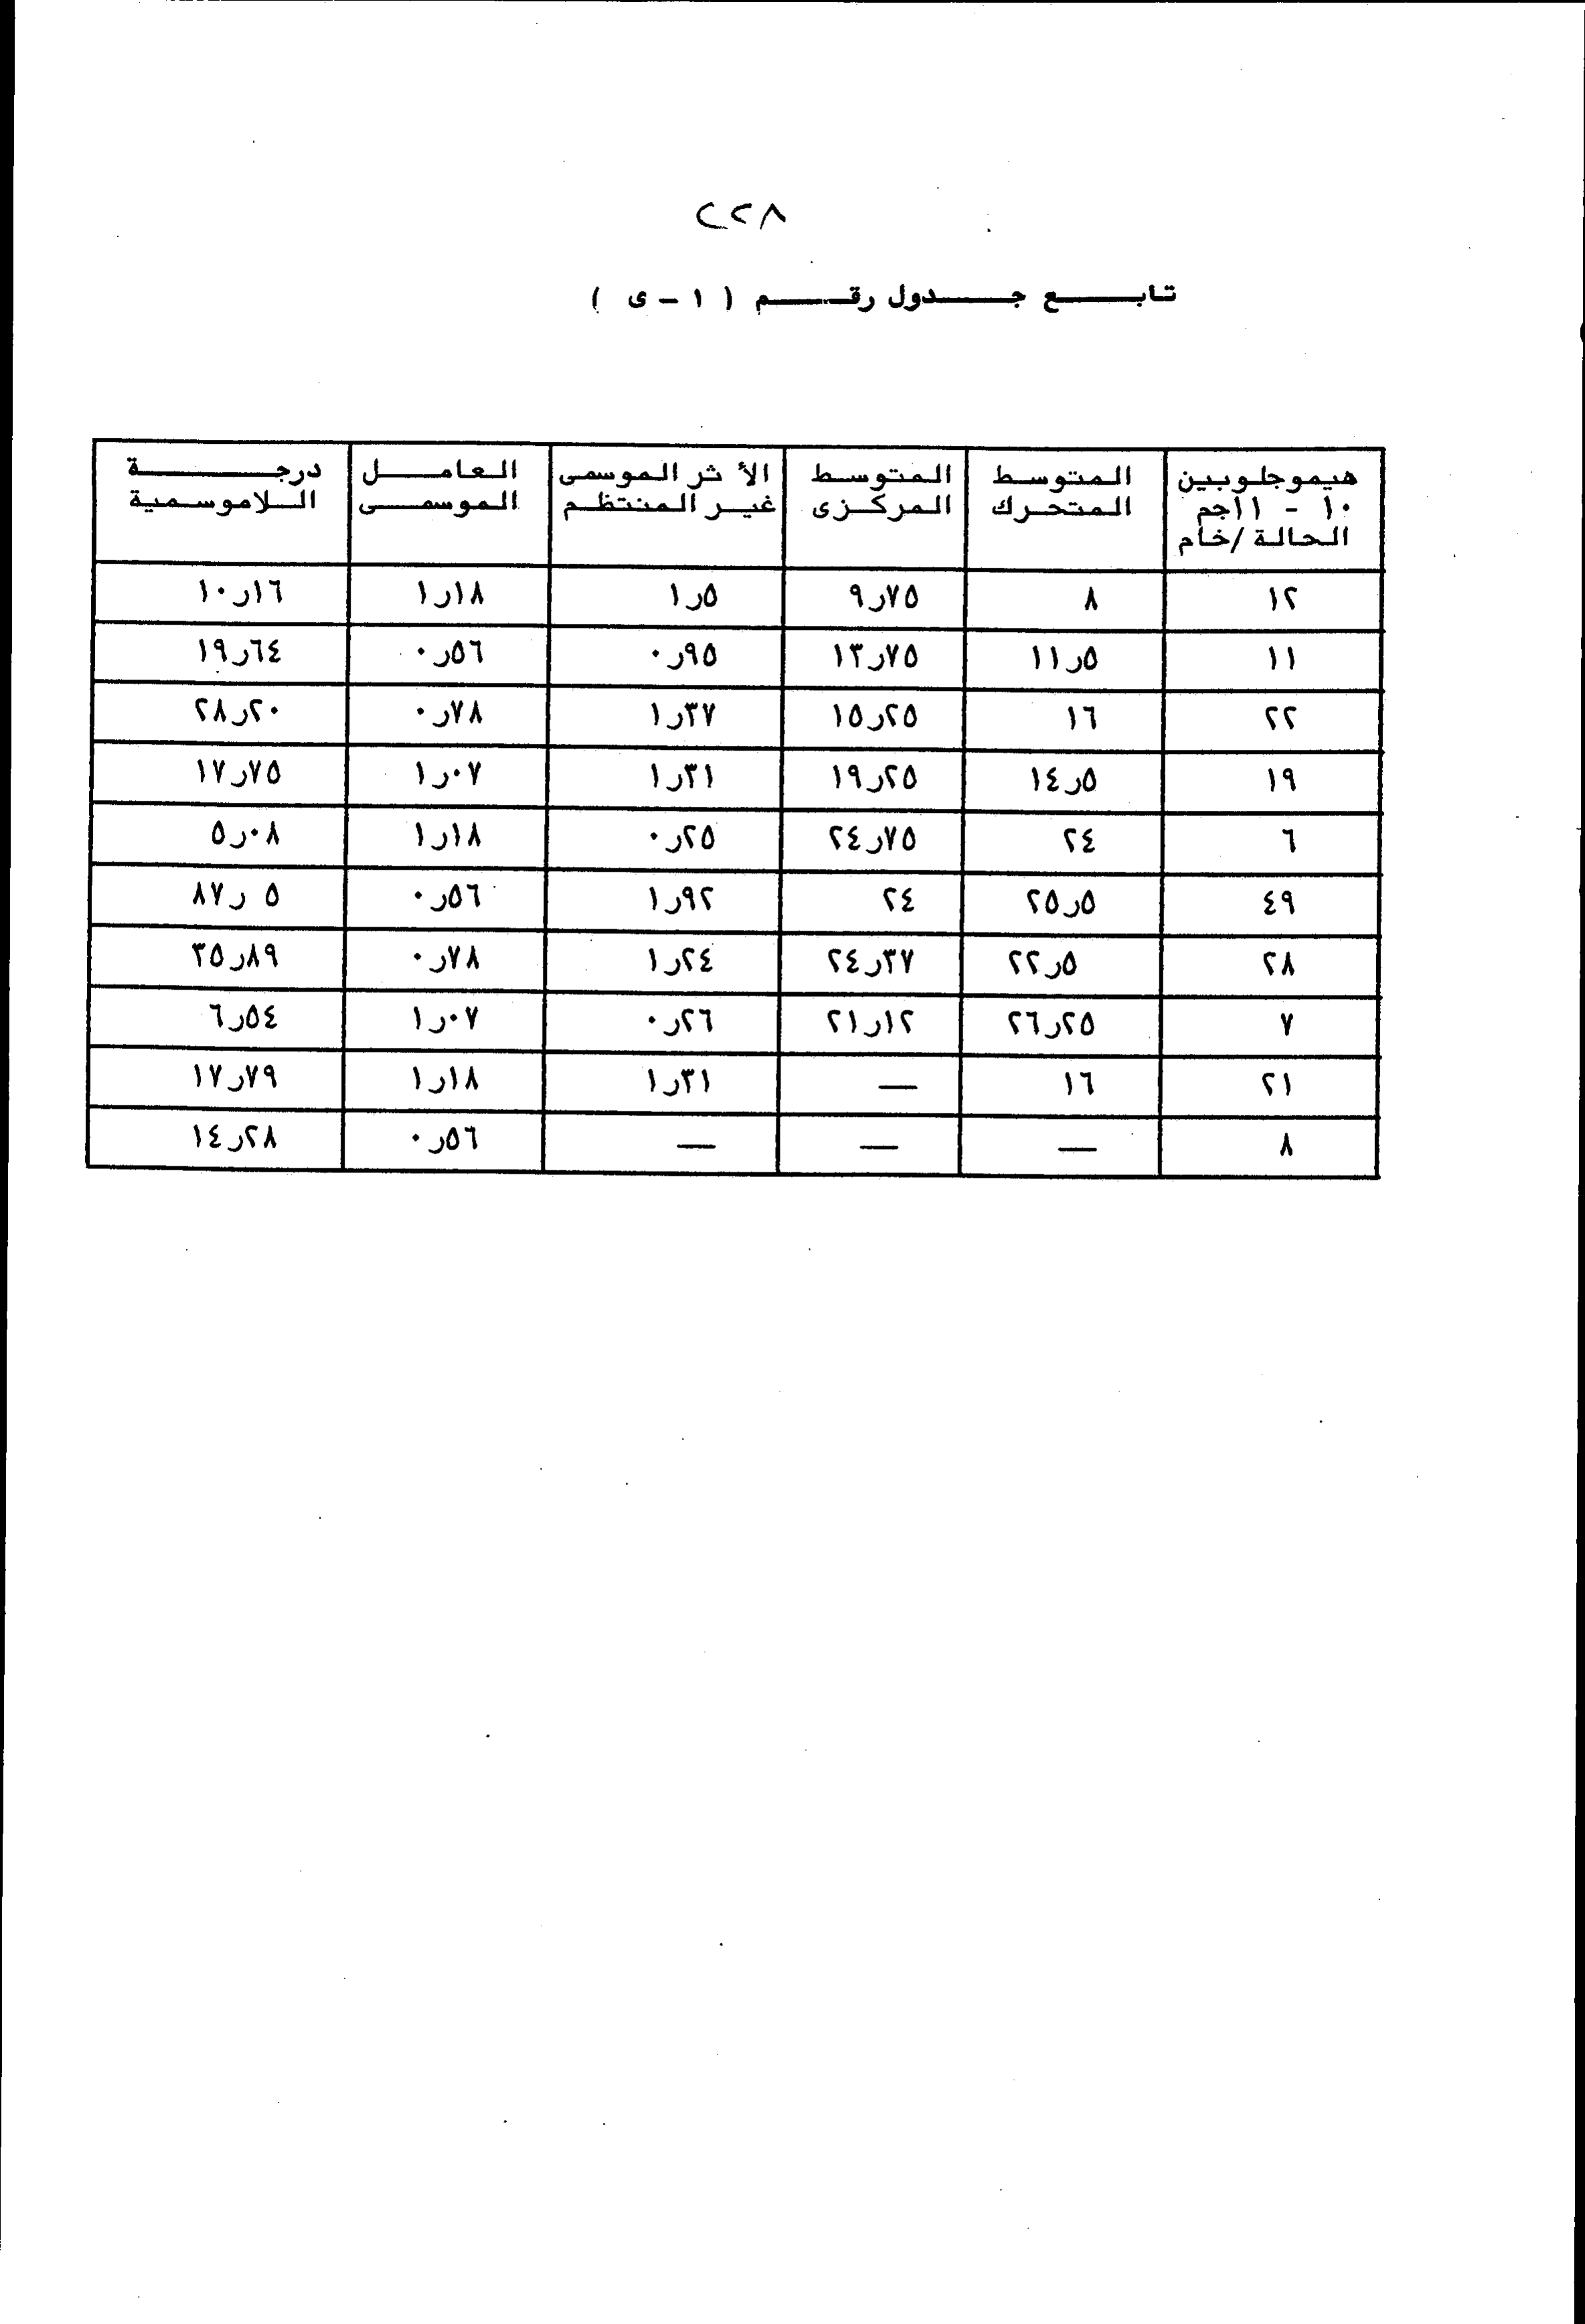 ٢٢٨
تابع جدول رقم ( ١ - ى )
هيموجلوبين ١٠ - ١١جم الحالة /خام | المتوسط المتحرك | المتوسط المركزى | الأثر الموسمى غير المنتظم | العامل الموسمى | درجة اللاموسمية
١٢ | ٨ | ٩ر٧٥ | ١ر٥ | ١ر١٨ | ١٠ر١٦
١١ | ١١ر٥ | ١٣ر٧٥ | ٠ر٩٥ | ٠ر٥٦ | ١٩ر٦٤
٢٢ | ١٦ | ١٥ر٢٥ | ١ر٣٧ | ٠ر٧٨ | ٢٨ر٢٠
١٩ | ١٤ر٥ | ١٩ر٢٥ | ١ر٣١ | ١ر٠٧ | ١٧ر٧٥
٦ | ٢٤ | ٢٤ر٧٥ | ٠ر٢٥ | ١ر١٨ | ٥ر٠٨
٤٩ | ٢٥ر٥ | ٢٤ | ١ر٩٢ | ٠ر٥٦ | ٨٧ر٥
٢٨ | ٢٢ر٥ | ٢٤ر٣٧ | ١ر٢٤ | ٠ر٧٨ | ٣٥ر٨٩
٧ | ٢٦ر٢٥ | ٢١ر١٢ | ٠ر٢٦ | ١ر٠٧ | ٦ر٥٤
٢١ | ١٦ | — | ١ر٣١ | ١ر١٨ | ١٧ر٧٩
٨ | — | — | — | ٠ر٥٦ | ١٤ر٢٨